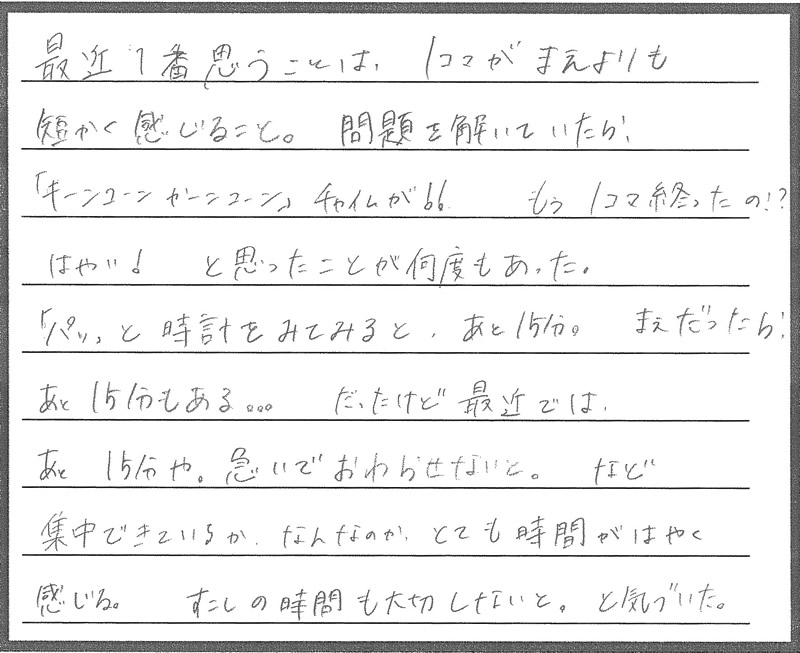 最近1番思うことは、1コマがまえよりも
短かく感じること。 問題を解いていたら!
「キーンコーンカーンコーン」チャイムが!! もう1コマ終ったの!?
はやい! と思ったことが何度もあった。
「パッ」と時計をみてみると、あと15分。 まえだったら!
あと15分もある... だったけど最近では、
あと15分や。急いでおわらせないと。 など
集中できているか、なんなのか、とても時間がはやく
感じる。 すこしの時間も大切しないと。と気づいた。